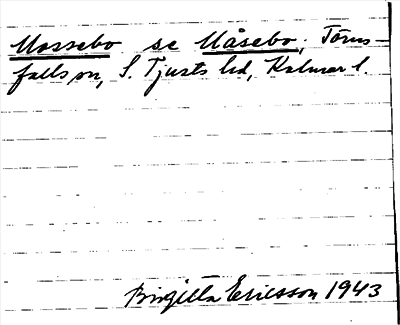 Mossebo se Måsebo, Törns-
falls sn, S. Tjusts hd, Kalmar l.
Birgitta Ericsson 1943